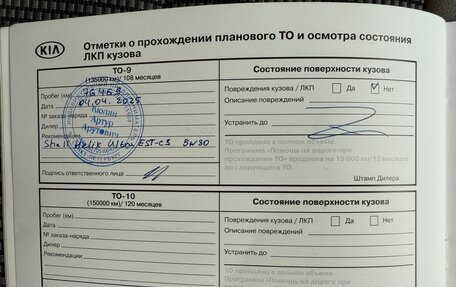 KIA
Отметки о прохождении планового ТО и осмотра состояния
ЛКП кузова
ТО-9
(135000 км)/ 108 месяцев
Пробег (км) 76468
Дата 04.04.2025
№ заказа-наряда
Дилер
Рекомендации
Shell Helix Ultra ECT-C3 5W30
Кюлян
Артур
Арутович
Подпись ответственного лица
Состояние поверхности кузова
Повреждения кузова / ЛКП Да Нет
Описание повреждений
Устранить до
ТО пройдено в полном объеме.
Программа «Помощь на дороге при
прохождении ТО» продлена на 15 000 км/12 месяцев
до следующего ТО.
Штамп Дилера
ТО-10
(150000 км)/ 120 месяцев
Пробег (км)
Дата
№ заказа-наряда
Дилер
Рекомендации
Состояние поверхности кузова
Повреждения кузова / ЛКП Да Нет
Описание повреждений
Устранить до
ТО пройдено в полном объеме.
Программа «Помощь на дороге при